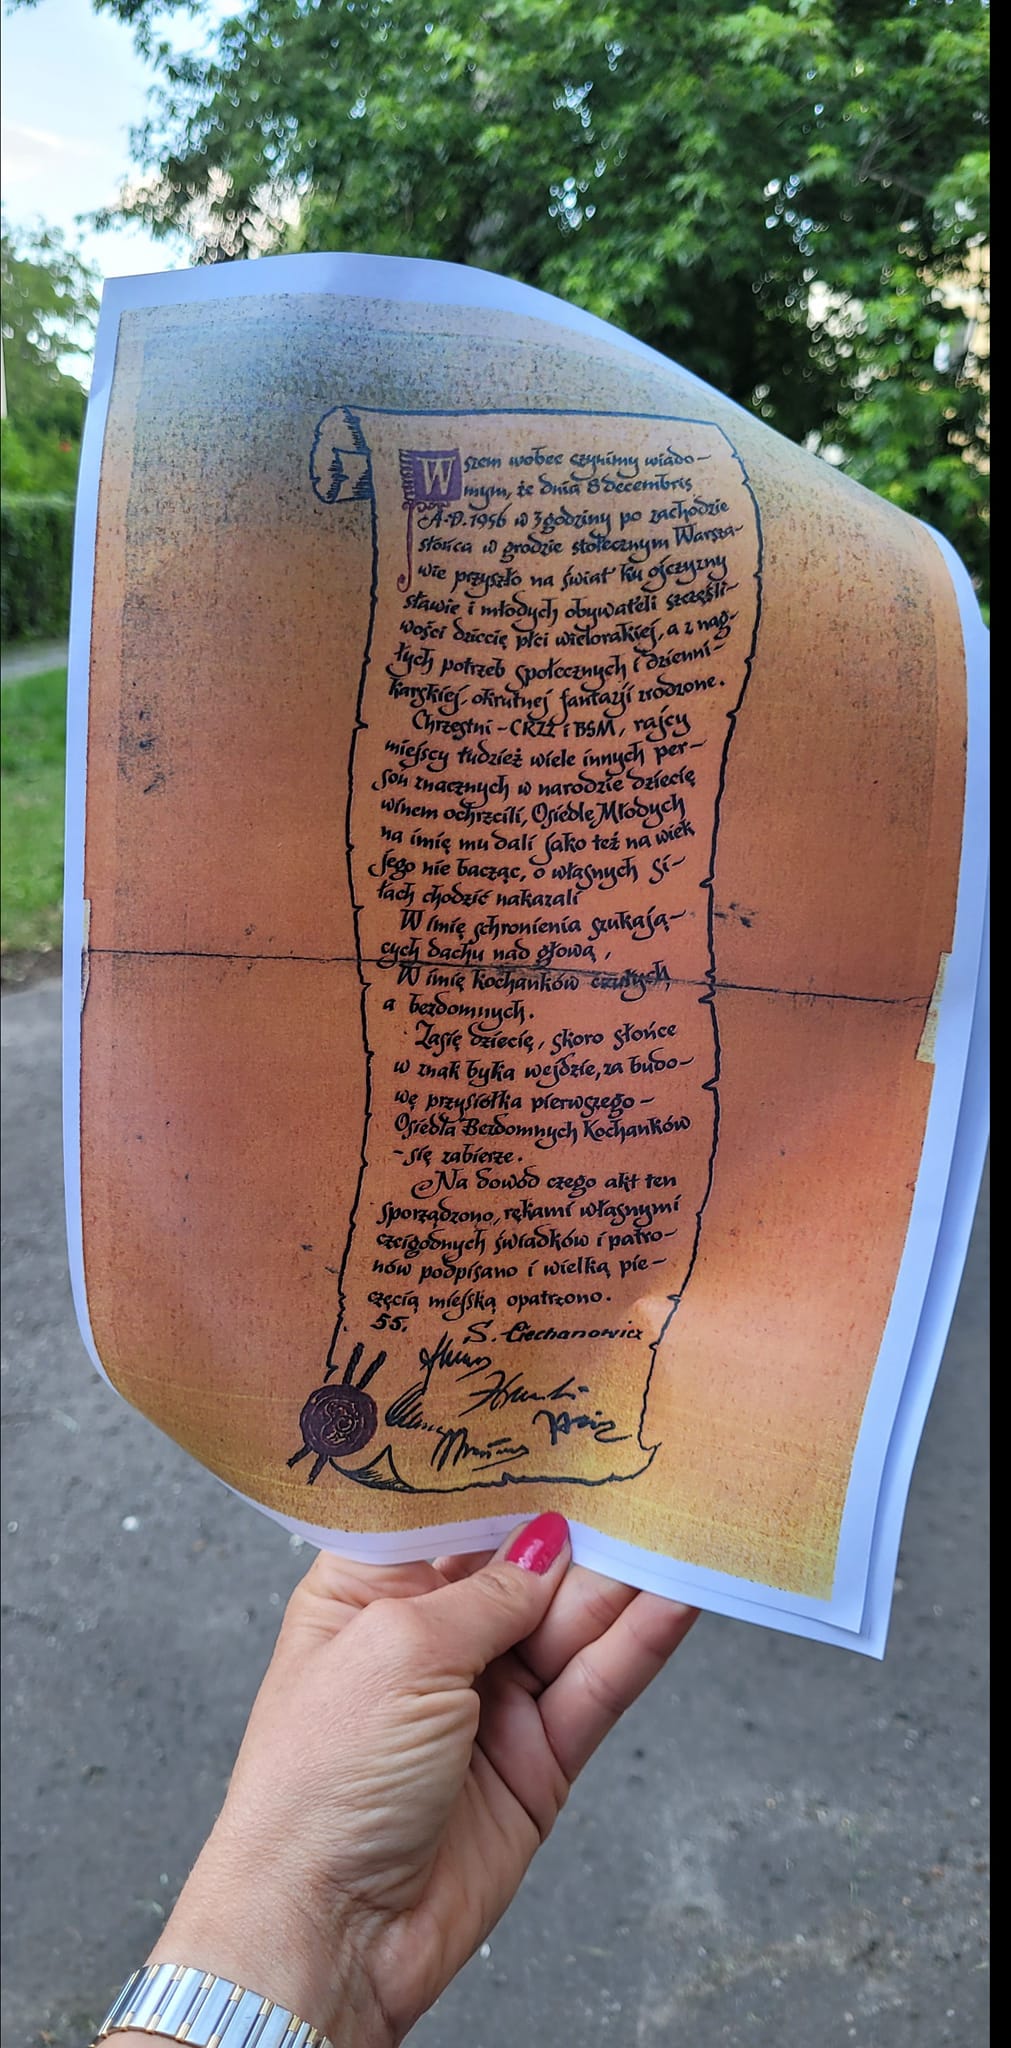 Wszem wobec czynimy wiado-
mym, że dnia 8 decembris
A.D. 1956 w 3 godziny po zachodzie
słońca w grodzie stołecznym Warsza-
wie przyszło na świat ku ojczyzny
sławie i młodych obywateli szczęśli-
wości dziecię płci wielorakiej, a z nag-
łych potrzeb społecznych i dzienni-
karskiej, okrutnej fantazji zrodzone.
Chrzestni - CRZZ i BSM, rajcy
miejscy tudzież wiele innych per-
son znacznych w narodzie dziecię
winem ochrzcili, Osiedle Młodych
na imię mu dali jako też na wiek
jego nie bacząc, o własnych si-
łach chodzić nakazali
W imię schronienia szukają-
cych dachu nad głową,
W imię kochanków czułych,
a bezdomnych.
Zasię dziecię, skoro słońce
w znak byka wejdzie, za budo-
wę przysiółka pierwszego -
Osiedla Bezdomnych Kochanków
- się zabierze.
Na dowód czego akt ten
sporządzono, rękami własnymi
czcigodnych świadków i patro-
nów podpisano i wielką pie-
częcią miejską opatrzono.
55. S. Ciechanowicz